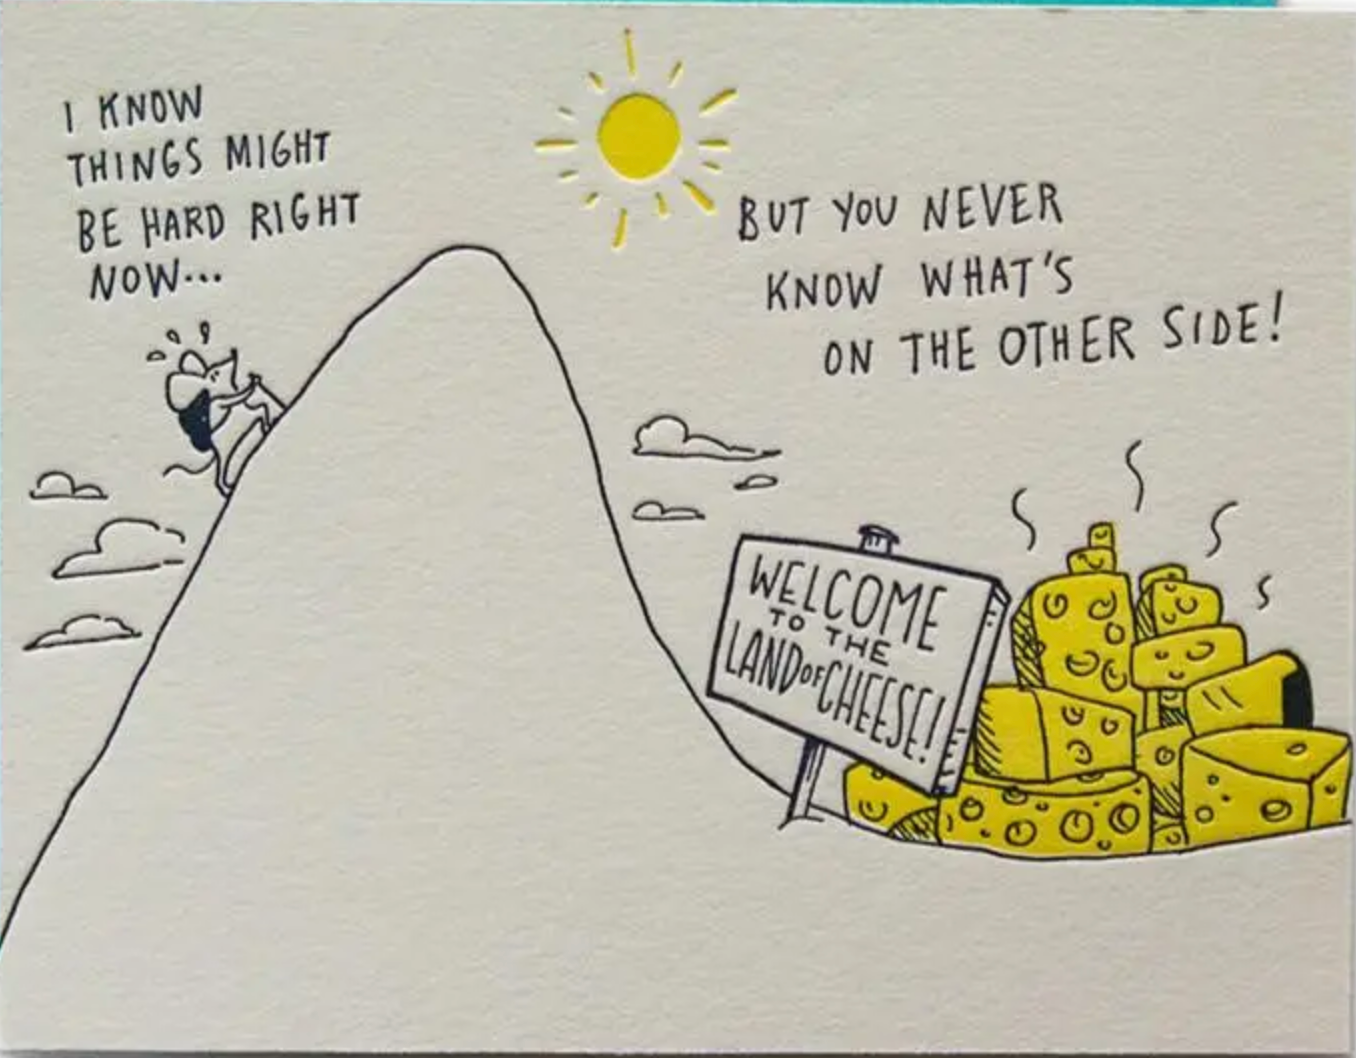 I KNOW
THINGS MIGHT
BE HARD RIGHT
NOW...
BUT YOU NEVER
KNOW WHAT'S
ON THE OTHER SIDE!
WELCOME
TO THE
LAND OF CHEESE!